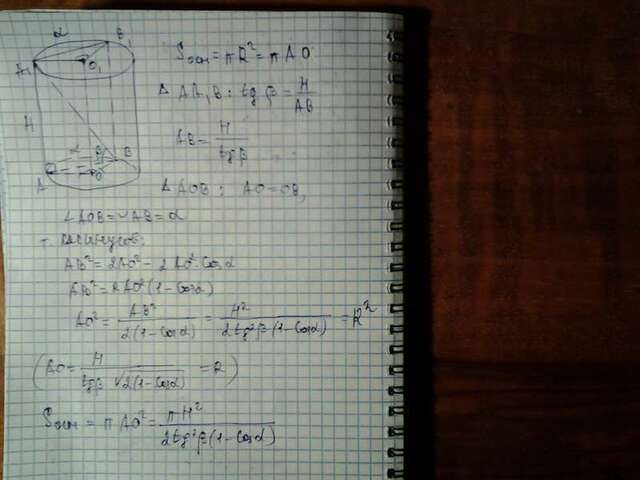 α
B₁
A₁
O₁
H
α
β
B
A
O
Sосн = πR² = πAO
Δ AA₁B: tg β = H/AB
AB = H/tgβ
Δ AOB: AO = OB,
∠AOB = ◡AB = α
т. косинусов:
AB² = 2AO² - 2AO² Cosα
AB² = 2AO² (1 - Cosα)
AO² = AB²/2(1 - Cosα) = H²/2tg²β(1 - Cosα) = R²
(AO = H/tgβ √2(1 - Cosα) = R)
Sосн = πAO² = πH²/2tg²β(1 - Cosα)